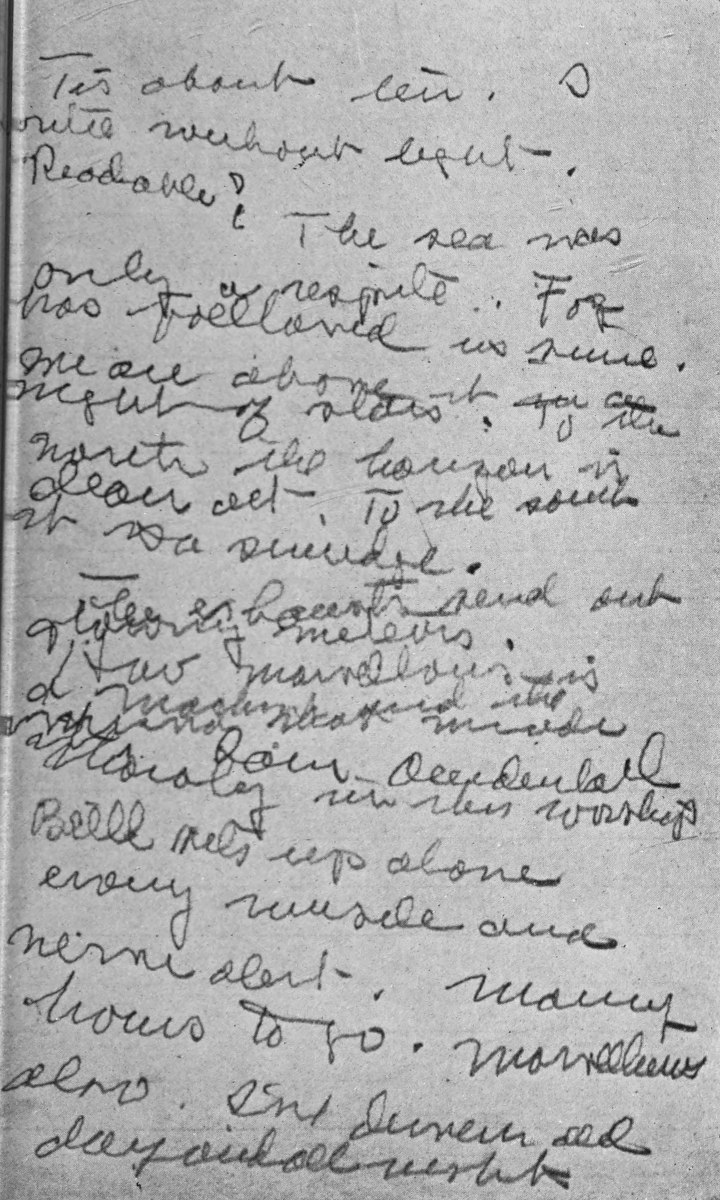 Tis about ten. I
write without light.
Readable?
The sea was
only a respite. Fog
has followed us since.
We are above it
night of stars. To the
north the horizon is
clear cut. To the south
it is a smudge.
The exhausts send out
glowing meteors.
How marvellous is
a machine and the
mind that made
it. Occidental
Thoroly in this worship
Bill sets up alone
every muscle and
nerve alert. Many
hours to go. Marvellous
also. I've driven all
day and all night